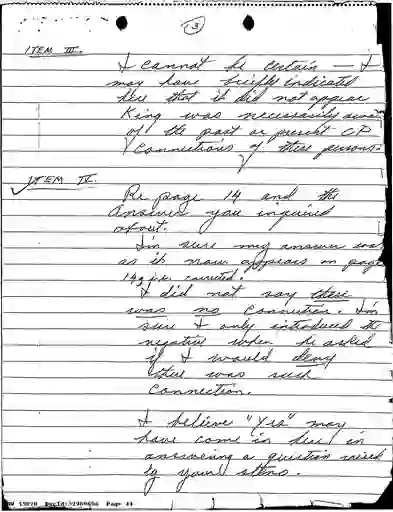 3
ITEM III.
I cannot be certain — I
may have briefly indicated
here that it did not appear
King was necessarily aware
of the past or present CP
connections of these persons.
ITEM IV.
Re page 14 and the
answer you inquired
about.
I'm sure my answer was
as it now appears on page
14, i.e. corrected.
I did not say there
was no connection. I'm
sure I only introduced the
negative when he asked
if I would deny
there was such
connection.
I believe "Yes" may
have come in here in
answering a question
by your steno.
DocId:32989696 Page 44